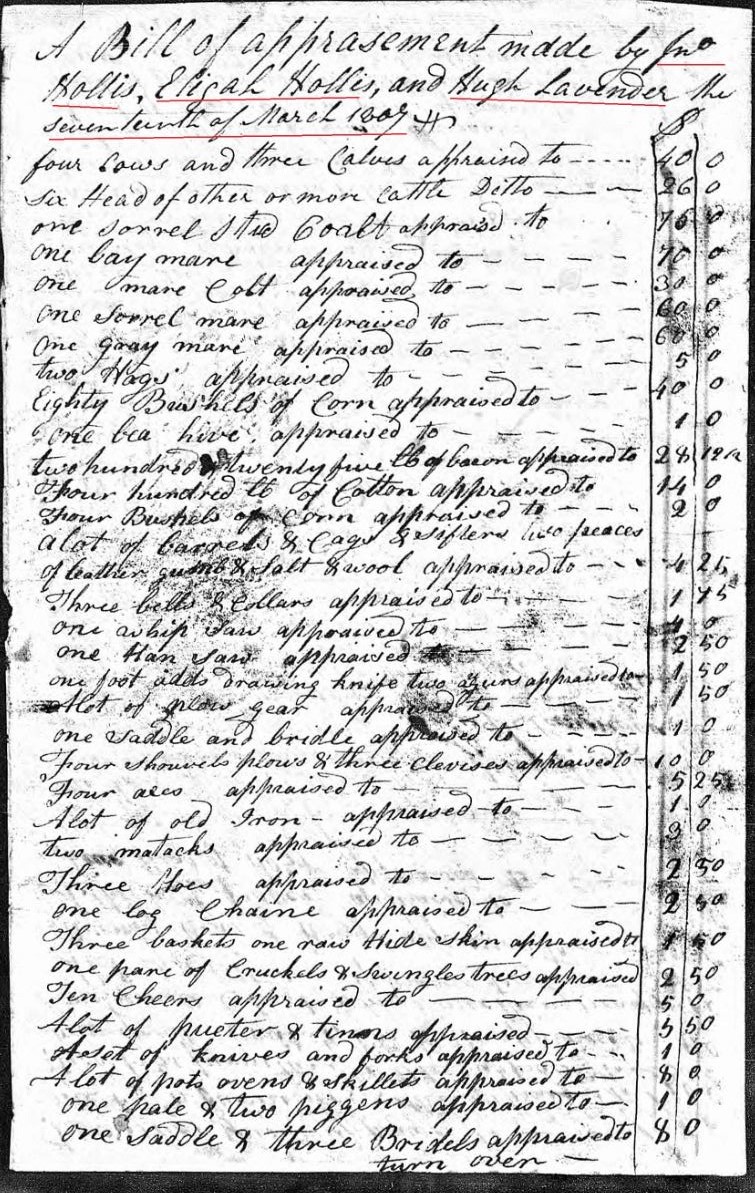 A Bill of apprasement made by Jno
Hollis, Elijah Hollis, and Hugh Lavender the
seventeenth of March 1807
$
four Cows and three Calves appraised to 40 0
six Head of other or more Cattle Ditto 26 0
one sorrel Stud Coalt appraisd to 75 0
one bay mare appraised to 70 0
one mare Colt appraised to 30 0
one Sorrel mare appraised to 60 0
one gray mare appraised to 60 0
two Hogs appraised to 5 0
Eighty Bushels of Corn appraised to 40 0
one bea hive appraised to 1 0
two hundred & twenty five lb of bacon appraised to 28 12½
Four hundred lb of Cotton appraised to 14 0
Four Bushels of Corn appraised to 2 0
A lot of barrels & Cags & sifters two peaces
of leather & Salt & wool appraised to 4 25
Three bells & Collars appraised to 1 75
one whip saw appraised to 4 0
one Han saw appraised to 2 50
one foot adds drawing knife two appraised to 1 50
A lot of plow gear appraised to 1 50
one saddle and bridle appraised to 1 0
Four shouvels plows & three Clevises appraised to 10 0
Four axes appraised to 5 25
A lot of old Iron appraised to 1 0
two matacks appraised to 3 0
Three Hoes appraised to 2 50
one log Chaine appraised to 2 50
Three baskets one raw Hide Skin appraised to 1 50
one pare of Cruckels & Swingles trees appraised 2 50
Ten Cheers appraised to 5 0
A lot of pueter & tinns appraised 5 50
A set of knives and forks appraised to 1 0
A lot of pots ovens & Skillets appraised to 8 0
one pale & two piggens appraised to 1 0
one Saddle & three Bridels appraised to 8 0
turn over